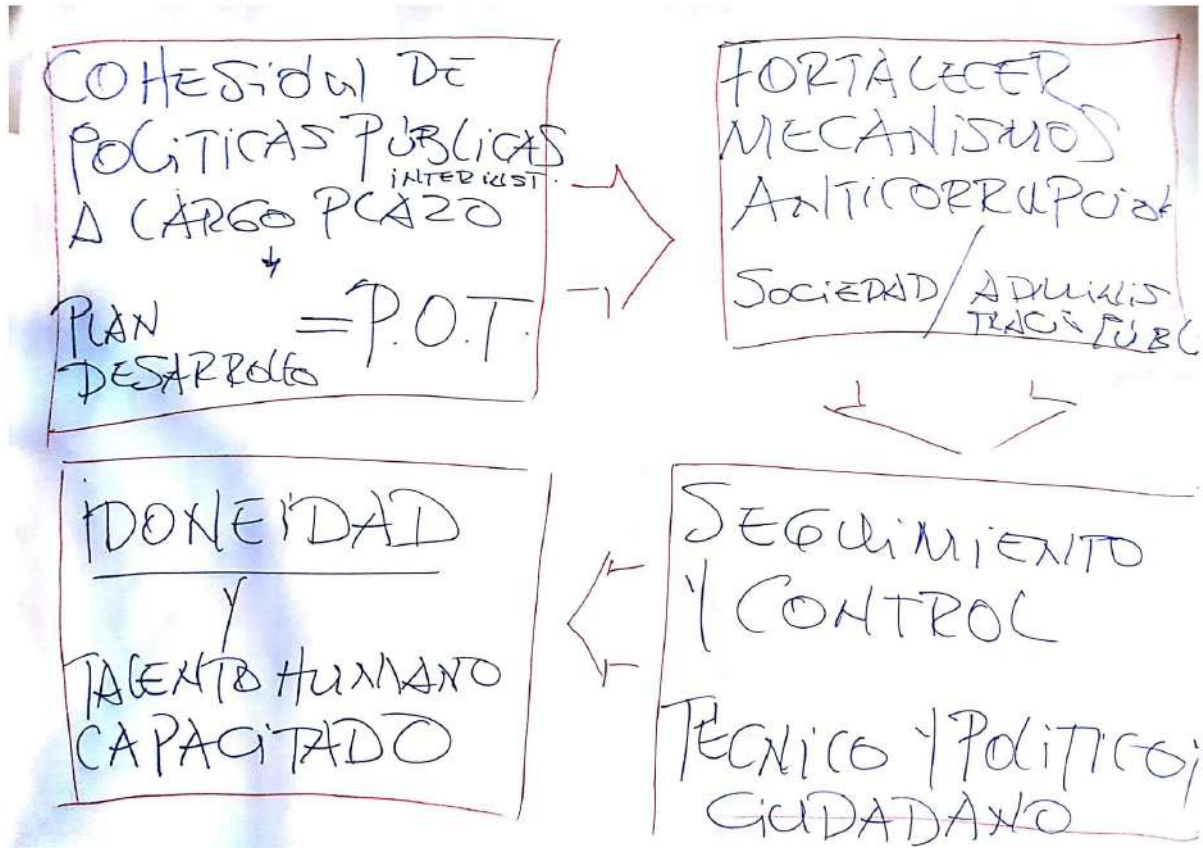 COHESiÓN DE
POLiTiCAS PÚBLiCAS
iNTERiNST.
A LARGO PLAZO
PLAN
DESARROLLO
= P.O.T.
FORTALECER
MECANiSMOS
ANTiCORRUPCióN
SOCiEDAD / ADMiNiS
TRACiÓN PÚBL
SEGUiMiENTO
Y CONTROL
TÉCNiCO Y POLíTiCO,
CiUDADANO
iDONEiDAD
Y
TALENTO HUMANO
CAPACiTADO